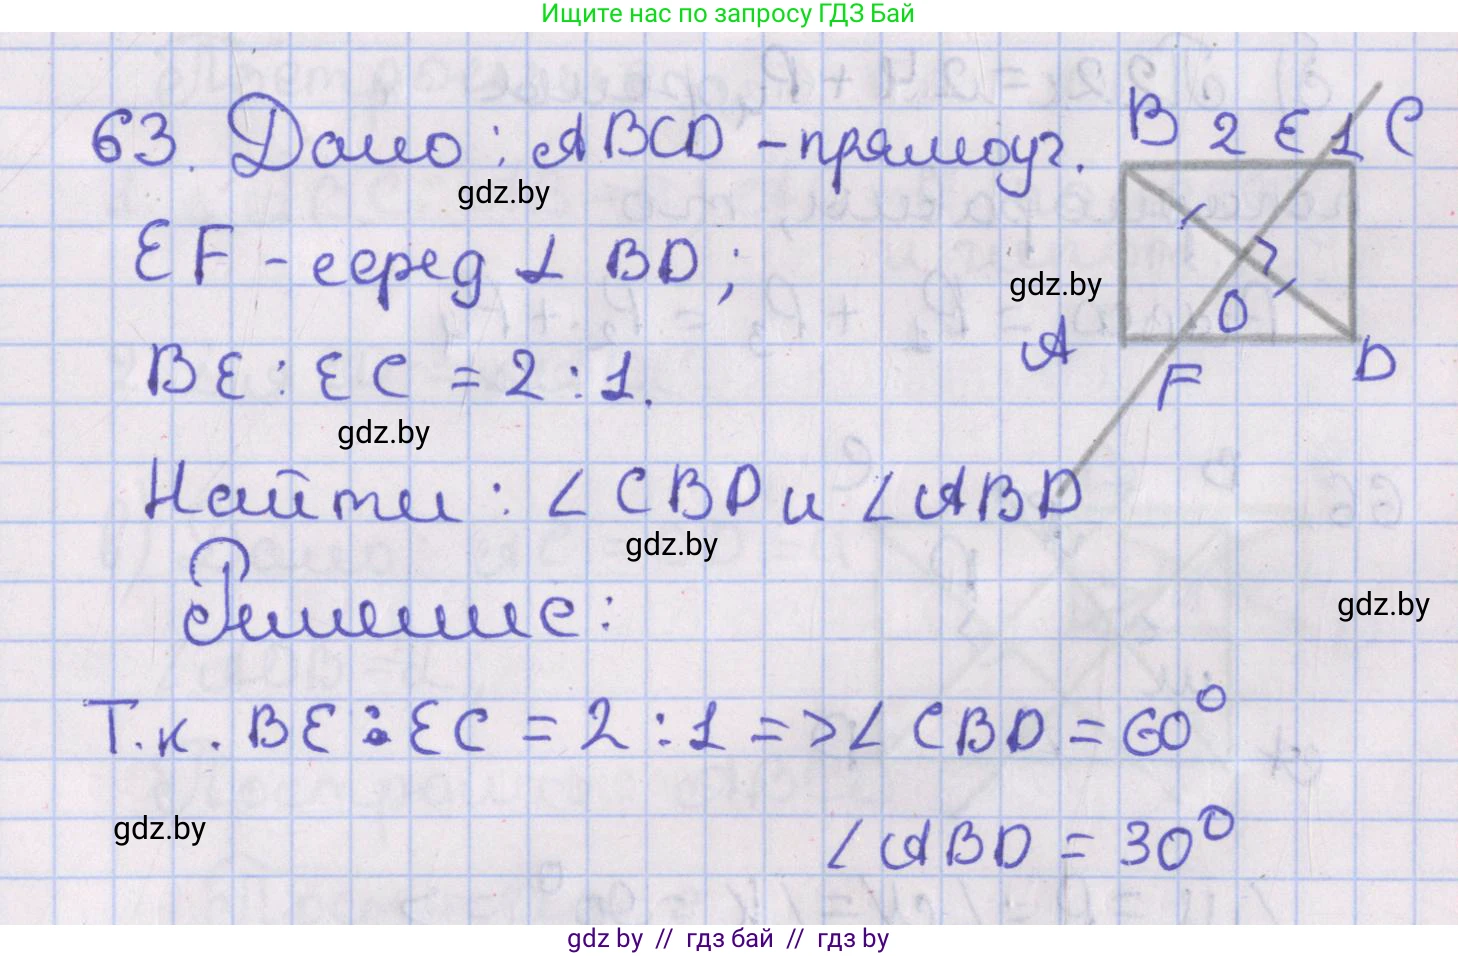 Ищите нас по запросу ГДЗ Бай
63. Дано: ABCD - прямоуг.
B 2 E 1 C
gdz.by
EF - серед ⊥ BD;
gdz.by
O
A
D
F
BE : EC = 2 : 1.
gdz.by
Найти: ∠CBD и ∠ABD
gdz.by
Решение:
gdz.by
Т.к. BE : EC = 2 : 1 => ∠CBD = 60°
gdz.by
∠ABD = 30°
gdz by // gdz бай // гдз by